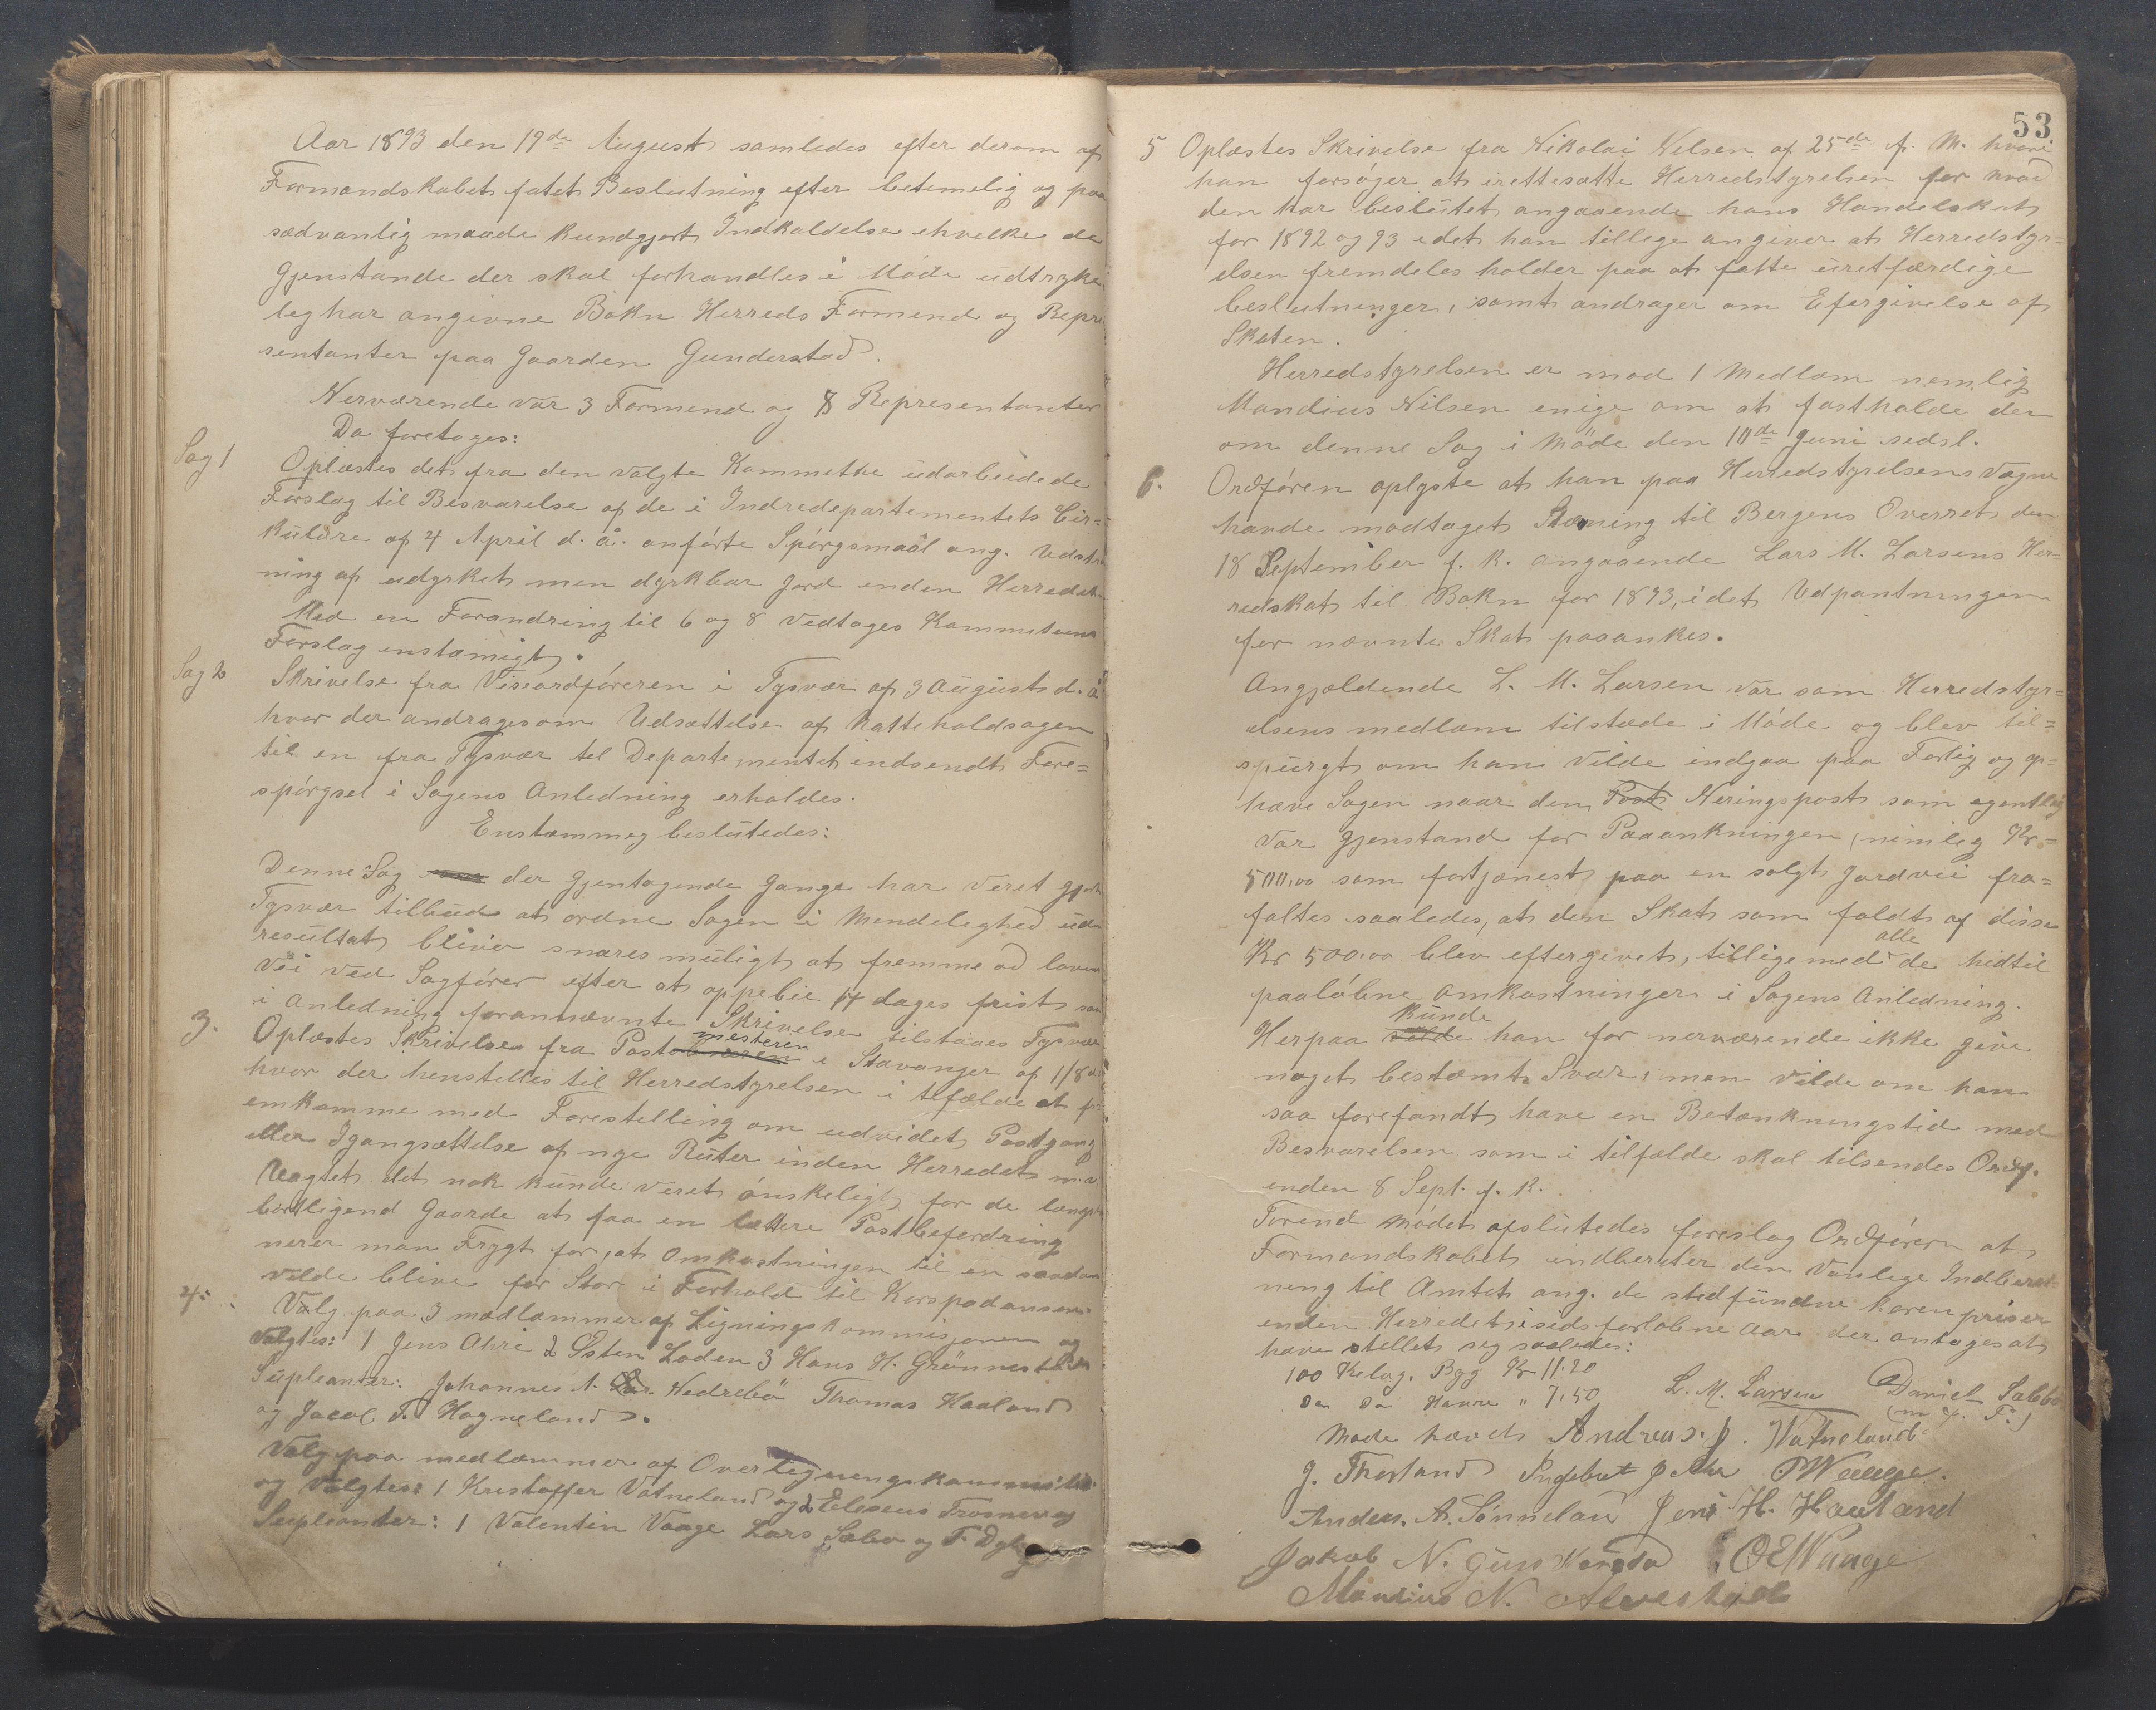 Aar 1893 den 19de August samledes efter derom af
Formandskabet fatet Beslutning efter betemelig og paa
sædvanlig maade kundgjort Indkaldelse ehvelke de
Gjenstande der skal forhandles i Møde udtrykke
leg har angivne Bokn Herreds Formend og Repre
sentanter paa Gaarden Gunderstad.
Nerværende var 3 Formend og 8 Representanter
Da foretages:
Sag 1
Oplæstes det fra den valgte Kommette udarbeidede
Forslag til Besvarelse af de i Indredepartementets Cir=
kulære af 4 April d. å. anførte Spørgsmaal ang. Udstr
ning af udyrket men dyrkbar Jord enden Herredet.
Med en Forandring til 6 og 8 vedtages Kommiteens
Forslag enstæmigt.
Sag 2
Skrivelse fra Viseordføreren i Tysvær af 3 August d. å
hvor der andrages om Udsættelse af Katteholdsagen
til en fra Tysvær tel Departementet indsendt Fore=
spørgsel i Sagens Anledning erholdes.
Enstæmmeg beslutedes:
Denne Sag der Gjentagende Gange har veret gjort
Tysvær tilbud at ordne Sagen i Mendeleghed uden
resultat bliver snares muligt at fremme ad lovens
Vei ved Sagfører efter at oppebie 14 dages frist som
i Anledning forannævnte Skrivelse tilstaaes Tysvær
3.
Oplæstes Skrivelse fra Postmesteren i Stavanger af 1/8 d.
hvor der henstelles til Herredstyrelsen i tlfælde at fr
emkomme med Forestelling om udvidet Postgang
eller Igangsættelse af nye Ruter inden Herredet m. v.
Uagtet det nok kunde veret ønskeligt for de længst
bortligend Gaarde at faa en lettere Postbefordring
nerer man Frygt for, at Omkostningen til en saadan
vilde blive for Stor i Forhold til Korspodansen.
4.
Valg paa 3 medlæmmer af Ligningskommisjonen og
Valgtes: 1 Jens Ohre 2 Østen Loden 3 Hans H. Grønnestad
Supleanter: Johannes A. Nedrebø Thomas Haaland
og Jacob T. Hogneland.
Valg paa medlæmmer af Overlegnengskommisio.
og Valgtes: 1 Kristoffer Vatneland og 2 Eleseus Trosnavag
Supleanter: 1 Valentin Vaage Lars Sæbø og T.
53
5 Oplæstes Skrivelse fra Nikolai Nelsen af 25de f. M. hvori
han forsøger at irettesætte Herredstyrelsen for hvad
den har beslutet angaaende hans Handelskat
for 1892 og 93 edet han tillege angiver at Herredstyr=
elsen fremdeles holder paa at fatte uretfærdige
beslutninger, samt andrager om Efergivelse af
Skaten.
Herredstyrelsen er mod 1 Medlæm nemlig
Mandius Nilsen enige om at fastholde den
om denne Sag i Møde den 10de Juni sedsl.
6.
Ordføren oplyste at han paa Herredstyrelsens Vegne
havde modtaget Stævning til Bergens Overret den
18 September f. k. angaaende Lars M. Larsens Her=
redskat til Bokn for 1893, idet Udpantningen
for nævnte Skat paaankes.
Angjældende L. M. Larsen var som Herredstyr=
elsens medlæm tilstæde i Møde og blev til=
spurgt om han vilde indgaa paa Forlig og op=
hæve Sagen naar den Post Neringspost som egentleg
var Gjenstand for Paaankningen, nemleg Kr=
500,00 som fortjænest paa en solgt Jordvei fra=
faltes saaledes, at den Skat som faldt af disse
Kr 500,00 blev eftergivet, tilligemed alle de hidtil
paaløbne Omkostninger i Sagens Anledning.
Herpaa kunde han for nerværende ikke give
noget bestæmt Svar, men vilde om han
saa forefandt have en Betænkningstid med
Besvarelsen som i tilfælde skal tilsendes Ordf.
enden 8 Sept. f. k.
Førend Mødet afslutedes foreslog Ordføren at
Formandskabet endberetter den vanlege Indberet=
neng til Amtet ang. de stedfundne korenpriser
enden Herredet i sidsforløbne Aar der antages at
have stellet seg saaledes:
100 Kelog. Bgg Kr 11.20
Do Do Havre " 7.50
L. M. Larsen Daniel Sæbbø
(m. f. P.)
Møde hævet Andreas J. Vatneland
J. Thorland Ingebret J Øhr Waage.
Anders. A. Sønnelan Jens H. Hauland
Jakob N. OEWaage
Mandius N. Alvestad